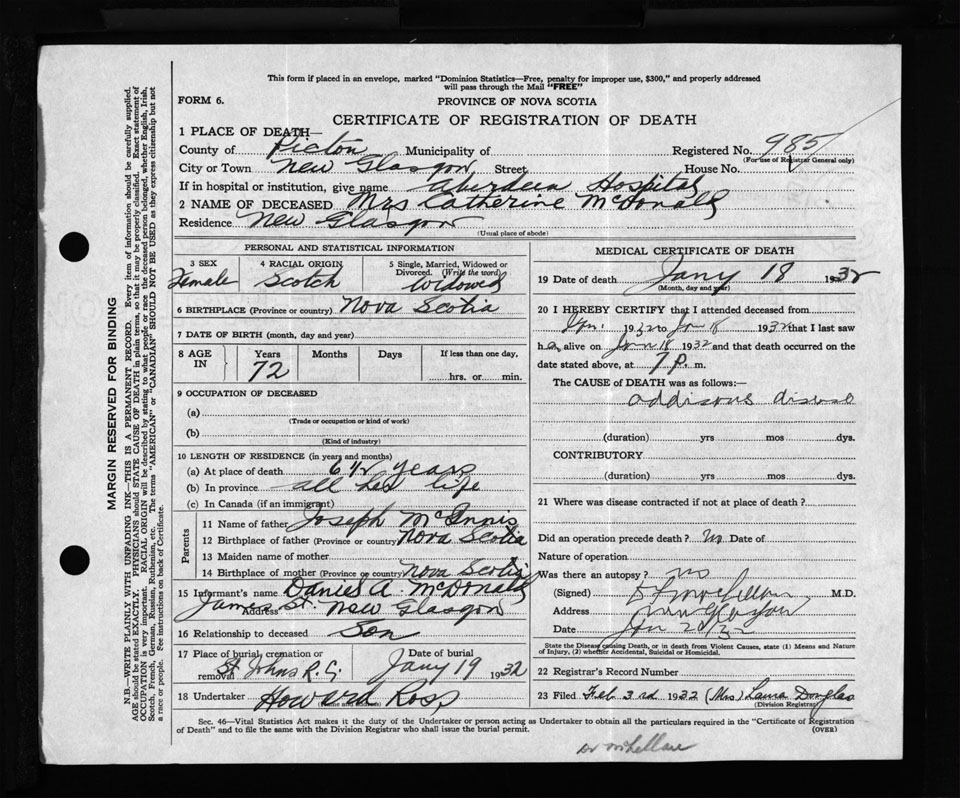 This form if placed in an envelope, marked "Dominion Statistics—Free, penalty for improper use, $300," and properly addressed
will pass through the Mail "FREE"
FORM 6.
PROVINCE OF NOVA SCOTIA
CERTIFICATE OF REGISTRATION OF DEATH
1 PLACE OF DEATH—
County of Pictou Municipality of Registered No. 985
(For use of Registrar General only)
City or Town New Glasgow Street House No.
If in hospital or institution, give name Aberdeen Hospital
2 NAME OF DECEASED Mrs Catherine McDonald
Residence New Glasgow
(Usual place of abode)
PERSONAL AND STATISTICAL INFORMATION
3 SEX 4 RACIAL ORIGIN 5 Single, Married, Widowed or
Divorced. (Write the word)
Female Scotch Widowed
6 BIRTHPLACE (Province or country) Nova Scotia
7 DATE OF BIRTH (month, day and year)
8 AGE IN Years Months Days If less than one day,
72 hrs. or min.
9 OCCUPATION OF DECEASED
(a)
(Trade or occupation or kind of work)
(b)
(Kind of industry)
10 LENGTH OF RESIDENCE (in years and months)
(a) At place of death years
(b) In province all her life
(c) In Canada (if an immigrant)
Parents
11 Name of father Joseph McInnis
12 Birthplace of father (Province or country) Nova Scotia
13 Maiden name of mother
14 Birthplace of mother (Province or country) Nova Scotia
15 Informant's name Daniel A. McDonald
Address James St. New Glasgow
16 Relationship to deceased Son
17 Place of burial, cremation or removal Date of burial
St Johns R.C. Jany 19 1932
18 Undertaker Howard Ross
(Name and address)
MEDICAL CERTIFICATE OF DEATH
19 Date of death Jany 18 1932
(Month, day and year)
20 I HEREBY CERTIFY that I attended deceased from
Jan. 1932 to Jan 18 1932 that I last saw
h alive on Jan 18 1932 and that death occurred on the
date stated above, at 7 P. m.
The CAUSE of DEATH was as follows:—
addisons disease
(duration) yrs mos dys.
CONTRIBUTORY
(duration) yrs mos dys.
21 Where was disease contracted if not at place of death?
Did an operation precede death? no Date of
Nature of operation
Was there an autopsy? no
(Signed) M.D.
Address New Glasgow
Date Jan 20/32
State the Disease causing Death, or in death from Violent Causes, state (1) Means and Nature
of Injury, (2) whether Accidental, Suicidal or Homicidal.
22 Registrar's Record Number
23 Filed Feb 3rd 1932 (Mrs) Laura Douglas
(Division Registrar)
Sec. 46—Vital Statistics Act makes it the duty of the Undertaker or person acting as Undertaker to obtain all the particulars required in the "Certificate of Registration
of Death" and to file the same with the Division Registrar who shall issue the burial permit.
(OVER)
Dr McLellan
MARGIN RESERVED FOR BINDING
N.B.—WRITE PLAINLY WITH UNFADING INK—THIS IS A PERMANENT RECORD. Every item of information should be carefully supplied.
AGE should be stated EXACTLY. PHYSICIANS should STATE CAUSE OF DEATH in plain terms, so that it may be properly classified. Exact statement of
OCCUPATION is very important. RACIAL ORIGIN will be described by stating to what people or race the deceased person belonged, whether English, Irish,
Scotch, French, German, Russian, Ruthenian, etc. The terms "AMERICAN" or "CANADIAN" SHOULD NOT BE USED as they express citizenship but not
a race or people. See instructions on back of Certificate.